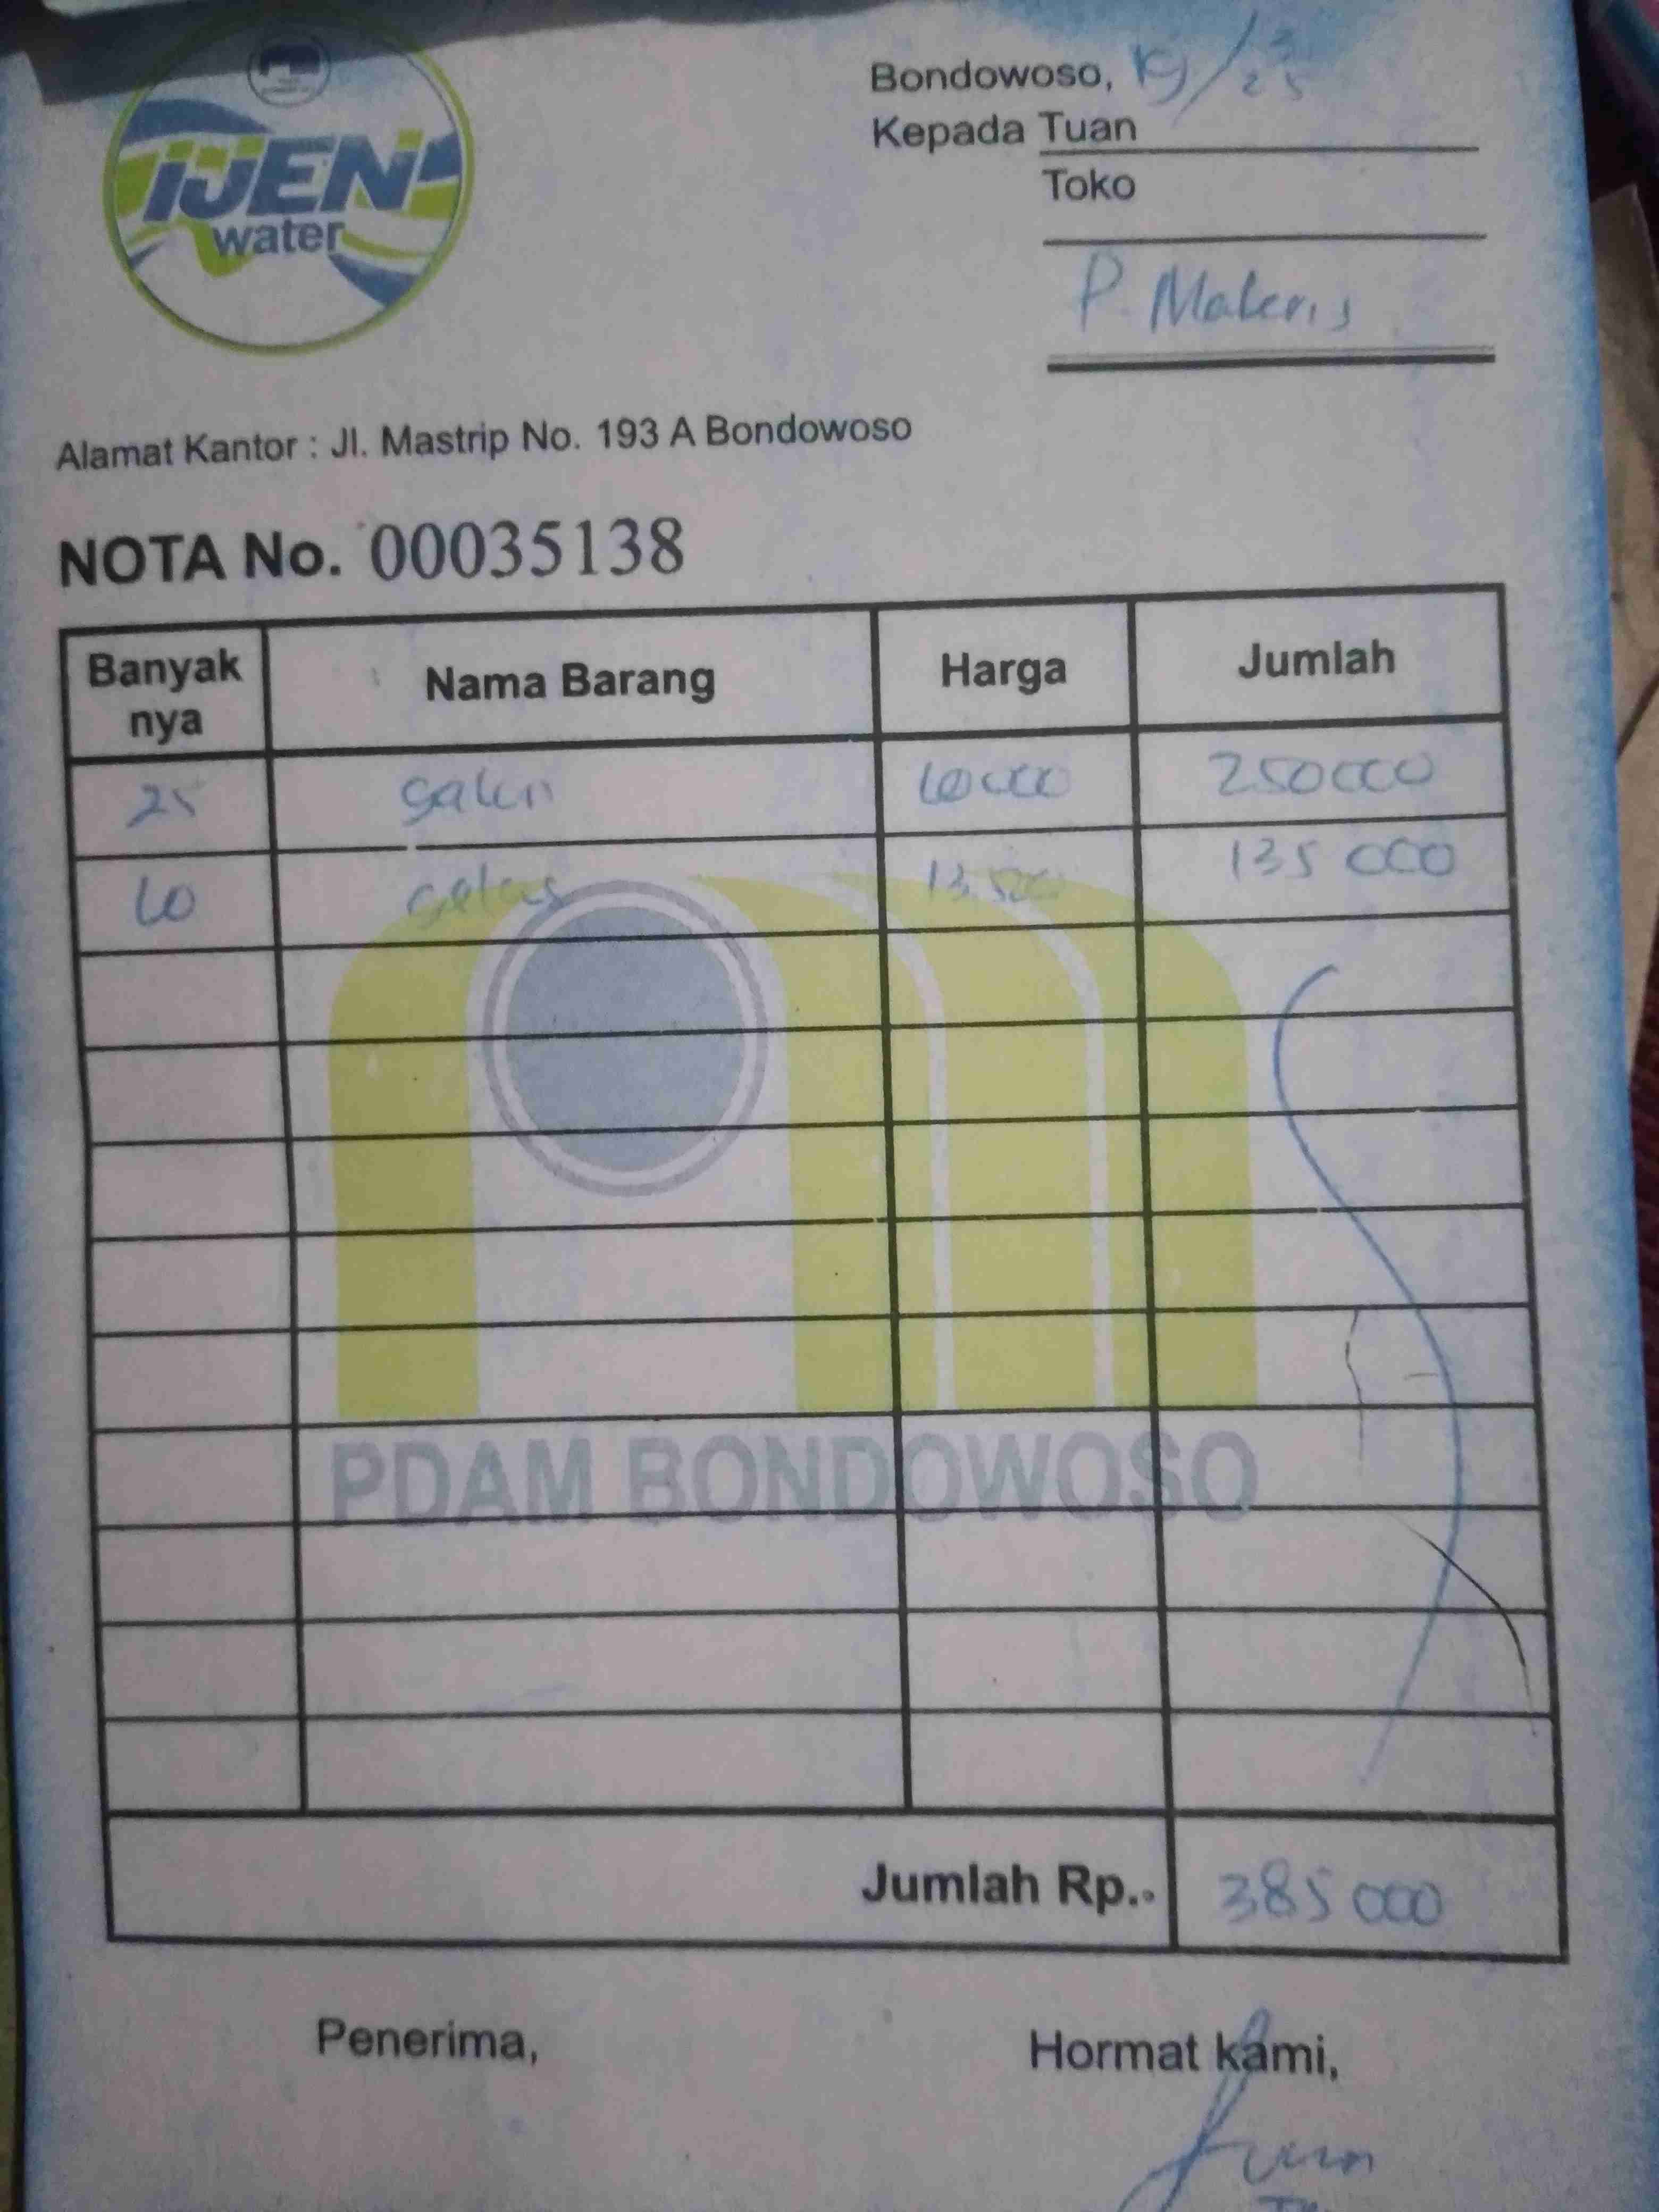 IJEN
water
Bondowoso, 19/3 25
Kepada Tuan
Toko
P. Materis
Alamat Kantor : Jl. Mastrip No. 193 A Bondowoso
NOTA No. 00035138
Banyak nya Nama Barang Harga Jumlah
25 galon 10000 250000
10 gelas 13.500 135 000
PDAM BONDOWOSO
Jumlah Rp.. 385 000
Penerima, Hormat kami,